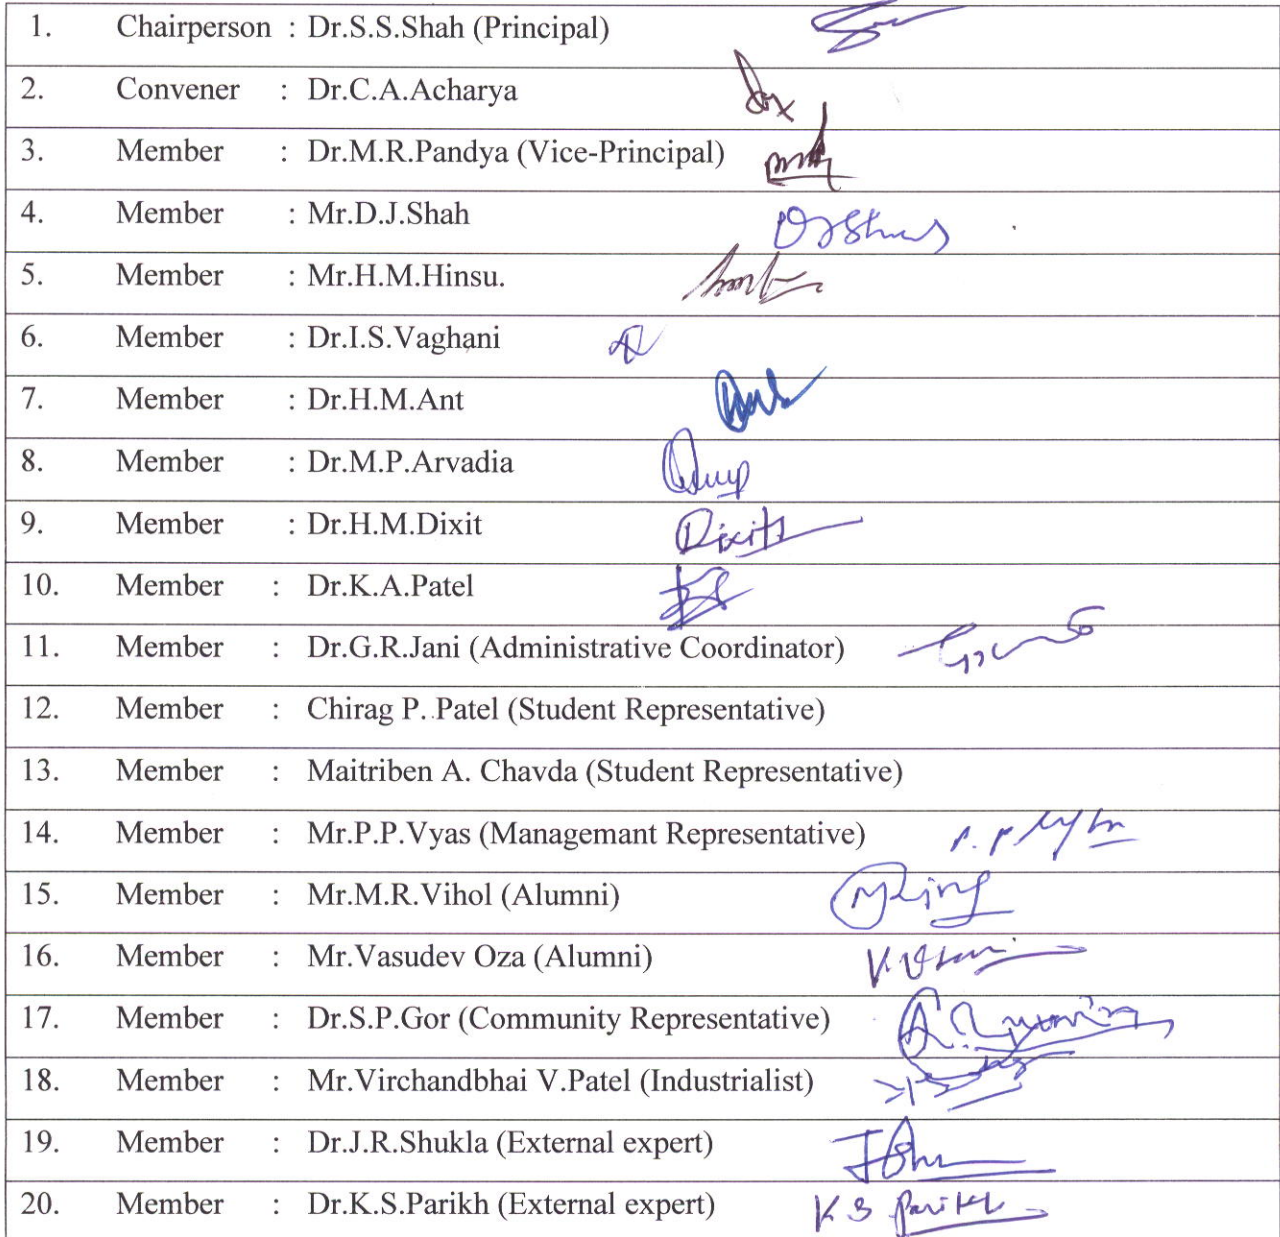 1. Chairperson : Dr.S.S.Shah (Principal)
2. Convener : Dr.C.A.Acharya
3. Member : Dr.M.R.Pandya (Vice-Principal)
4. Member : Mr.D.J.Shah DJShah
5. Member : Mr.H.M.Hinsu.
6. Member : Dr.I.S.Vaghani
7. Member : Dr.H.M.Ant
8. Member : Dr.M.P.Arvadia
9. Member : Dr.H.M.Dixit Dixit
10. Member : Dr.K.A.Patel
11. Member : Dr.G.R.Jani (Administrative Coordinator)
12. Member : Chirag P. Patel (Student Representative)
13. Member : Maitriben A. Chavda (Student Representative)
14. Member : Mr.P.P.Vyas (Managemant Representative)
15. Member : Mr.M.R.Vihol (Alumni)
16. Member : Mr.Vasudev Oza (Alumni)
17. Member : Dr.S.P.Gor (Community Representative)
18. Member : Mr.Virchandbhai V.Patel (Industrialist)
19. Member : Dr.J.R.Shukla (External expert)
20. Member : Dr.K.S.Parikh (External expert) K S Parikh